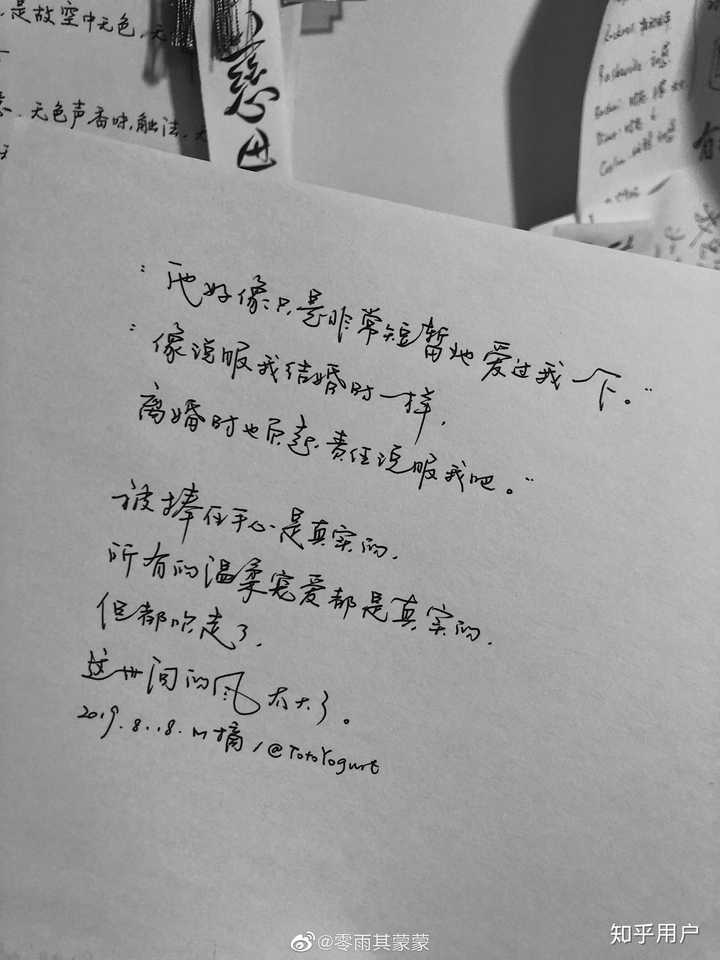 是故空中无色,无
无色声香味触法,
慈
"他好像只是非常短暂地爱过我一下。"
"像说服我结婚时一样,
离婚时也负起责任说服我吧。"
被捧在手心是真实的,
所有的温柔宠爱都是真实的,
但都吹走了,
这世间的风太大了。
2019.8.18.M摘/@TotoYogurt
@零雨其蒙蒙
知乎用户